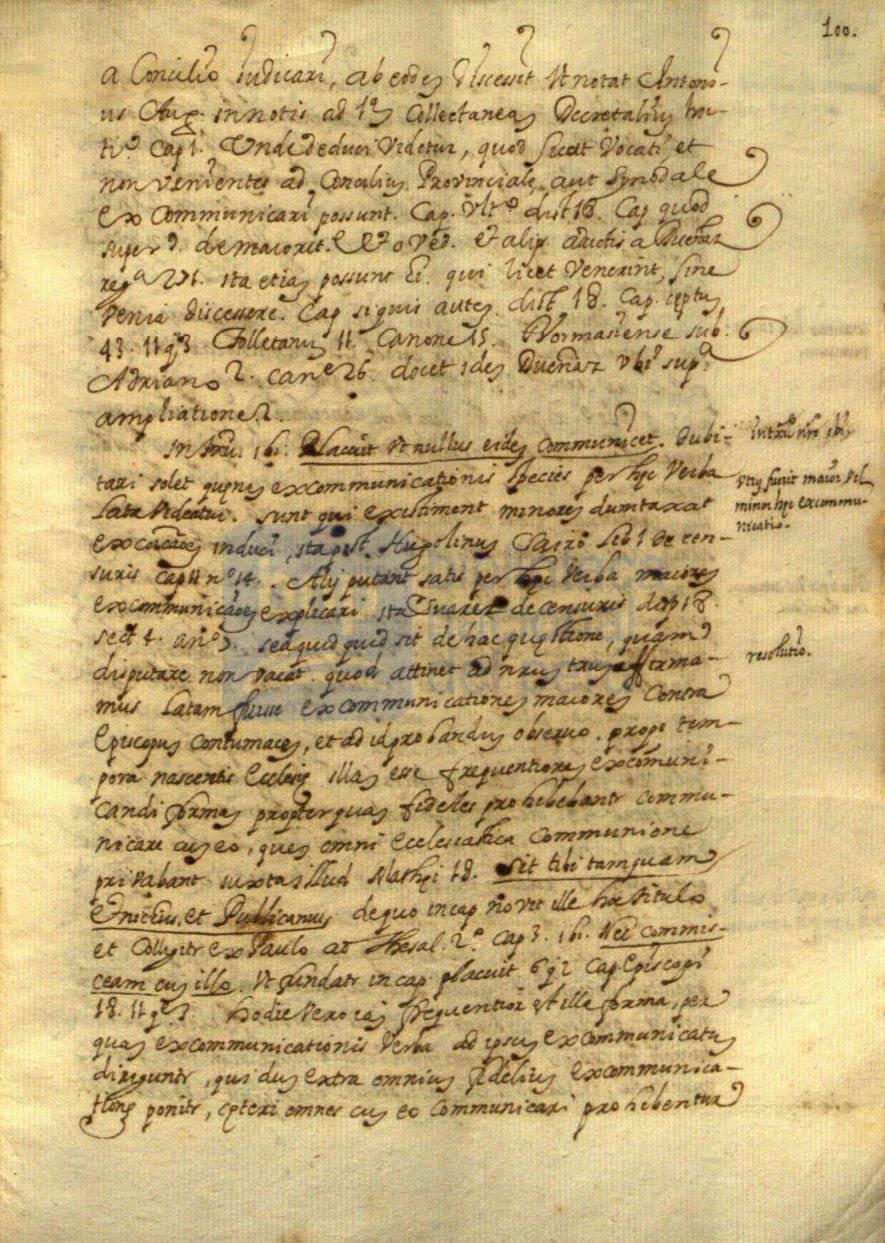 100.
a Concilio iudicari, ab eodem discessit ut notat Antoni-
us Aug. in notis ad 1am Collectaneam Decretalium
tit.º cap 1. Unde deduci Videtur, quod sicut Vocati et
non venientes ad Concilium Provinciale aut Synodale
excommunicari possunt. Cap. Ult.º dist 18. Cap quod
super d. de maiorit. et alijs
reg.ª 271. ita etiam possunt Ei. qui licet Venerint, sine
Venia discessere. Cap siquis autem dist 18. Cap.
43. 11 q 3 Tolletanum 11. Canone 15. Wormatiense sub.
Adriano 2. can.e 26. docet idem Duenas Ubi sup.ª
ampliatione 2.
In tru. ibi. Placuit ut nullus eidem Communicet. dubi-
tari solet quenam excommunicationis species per hec Verba
Lata Videatur. sunt qui existiment minorem dumtaxat
induci, ita Hugolinus Lib 1 de cen-
suris cap 11 nº 14. Alij putant satis per hec Verba maiorem
excommunicãem explicari ita Suarez de censuris disp 18.
sect 4. sed quidquid sit de hac questione, quam
disputare non vacat. quod attinet ad nrum affirma-
mus Latam fuisse excommunicationem maiorem Contra
Episcopum Contumacem, et ad id probandum observo. prope tem-
pora nascentis Ecclesie illam esse frequentiorem excomuni-
candi formam propter quam fideles prohibebantr commu-
nicare cum eo, quem omni Ecclesiastica Communione
privabant iuxta illud Mathei 18. Sit tibi tamquam
Ethnicus, et Publicanus, de quo in cap novit ille hoc titulo
et Colligitr ex Paulo ad Thesal. 2.ª Cap 3. ibi. Nec commis-
ceamini cum illo. Ut fundatr in cap placuit 6 q 2 Cap Episcopi
18. 11 q.e 3. hodie Vero iam frequentior est ille forma, per
quam excommunicationis Verba ad ipsum excommunicatum
diriguntr, qui dum extra omnium fidelium excommunica-
tione ponitr, ceteri omnes cum eo Communicari prohibentur
utrum fuerit maior, Vel
minor hec excommu-
nicatio.
resolutio.